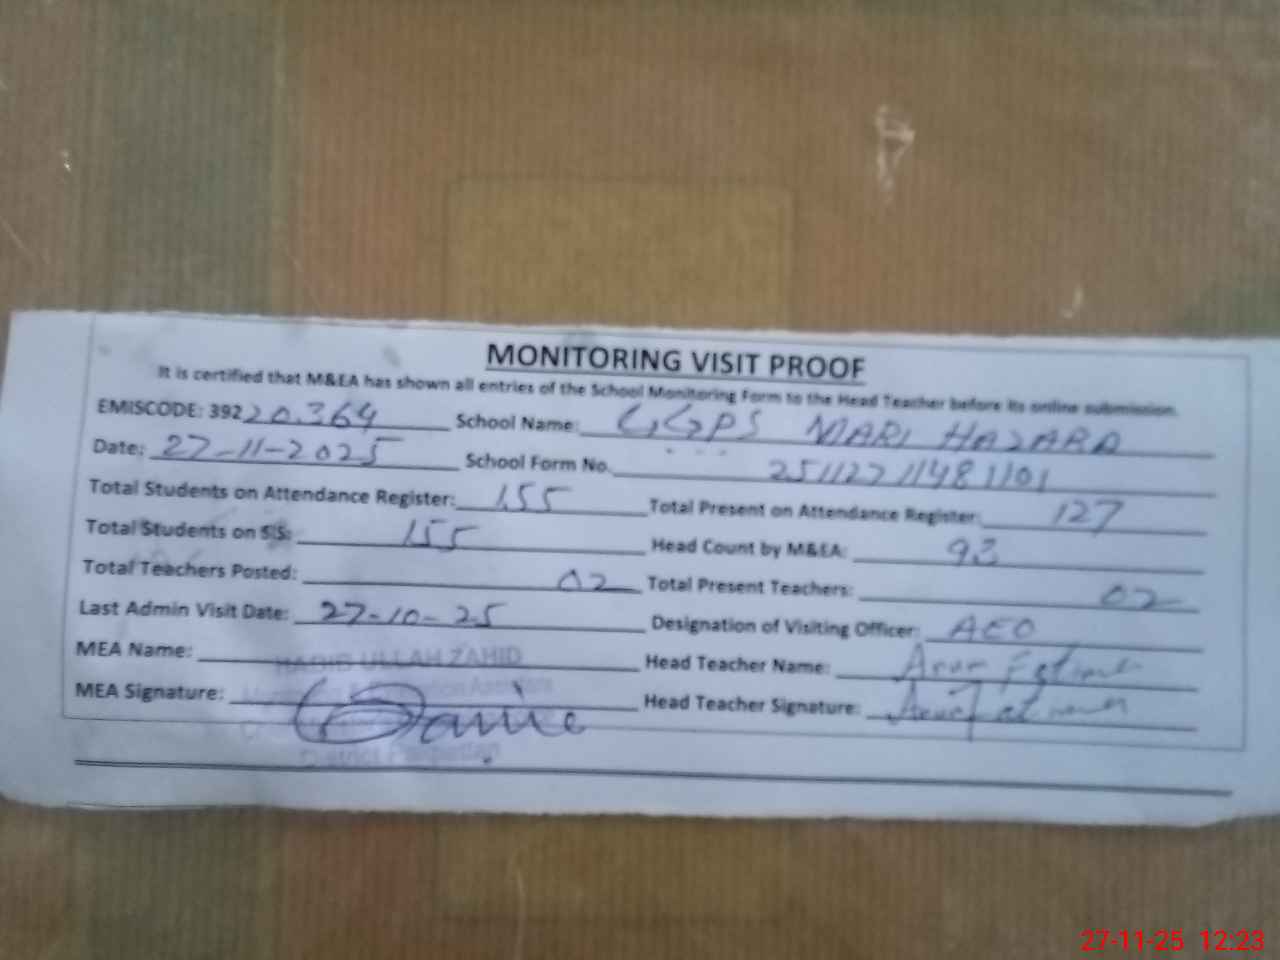 MONITORING VISIT PROOF
It is certified that M&EA has shown all entries of the School Monitoring Form to the Head Teacher before its online submission.
EMISCODE: 39220364 School Name: GGPS MARI HAZARA
Date: 27-11-2025 School Form No. 25112711481101
Total Students on Attendance Register: 155 Total Present on Attendance Register: 127
Total Students on SIS: 155 Head Count by M&EA: 93
Total Teachers Posted: 02 Total Present Teachers: 02
Last Admin Visit Date: 27-10-25 Designation of Visiting Officer: AEO
MEA Name: ULLAH ZAHID Head Teacher Name: Fatima
MEA Signature: Head Teacher Signature: Fatima
District
27-11-25 12:23